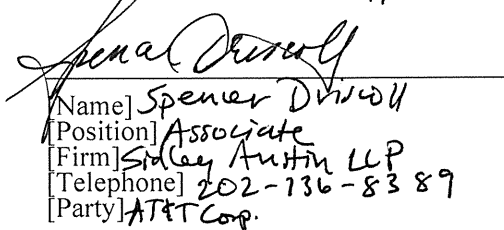 Spencer Driscoll
[Name] Spencer Driscoll
[Position] Associate
[Firm] Sidley Austin LLP
[Telephone] 202-736-8389
[Party] AT&T Corp.